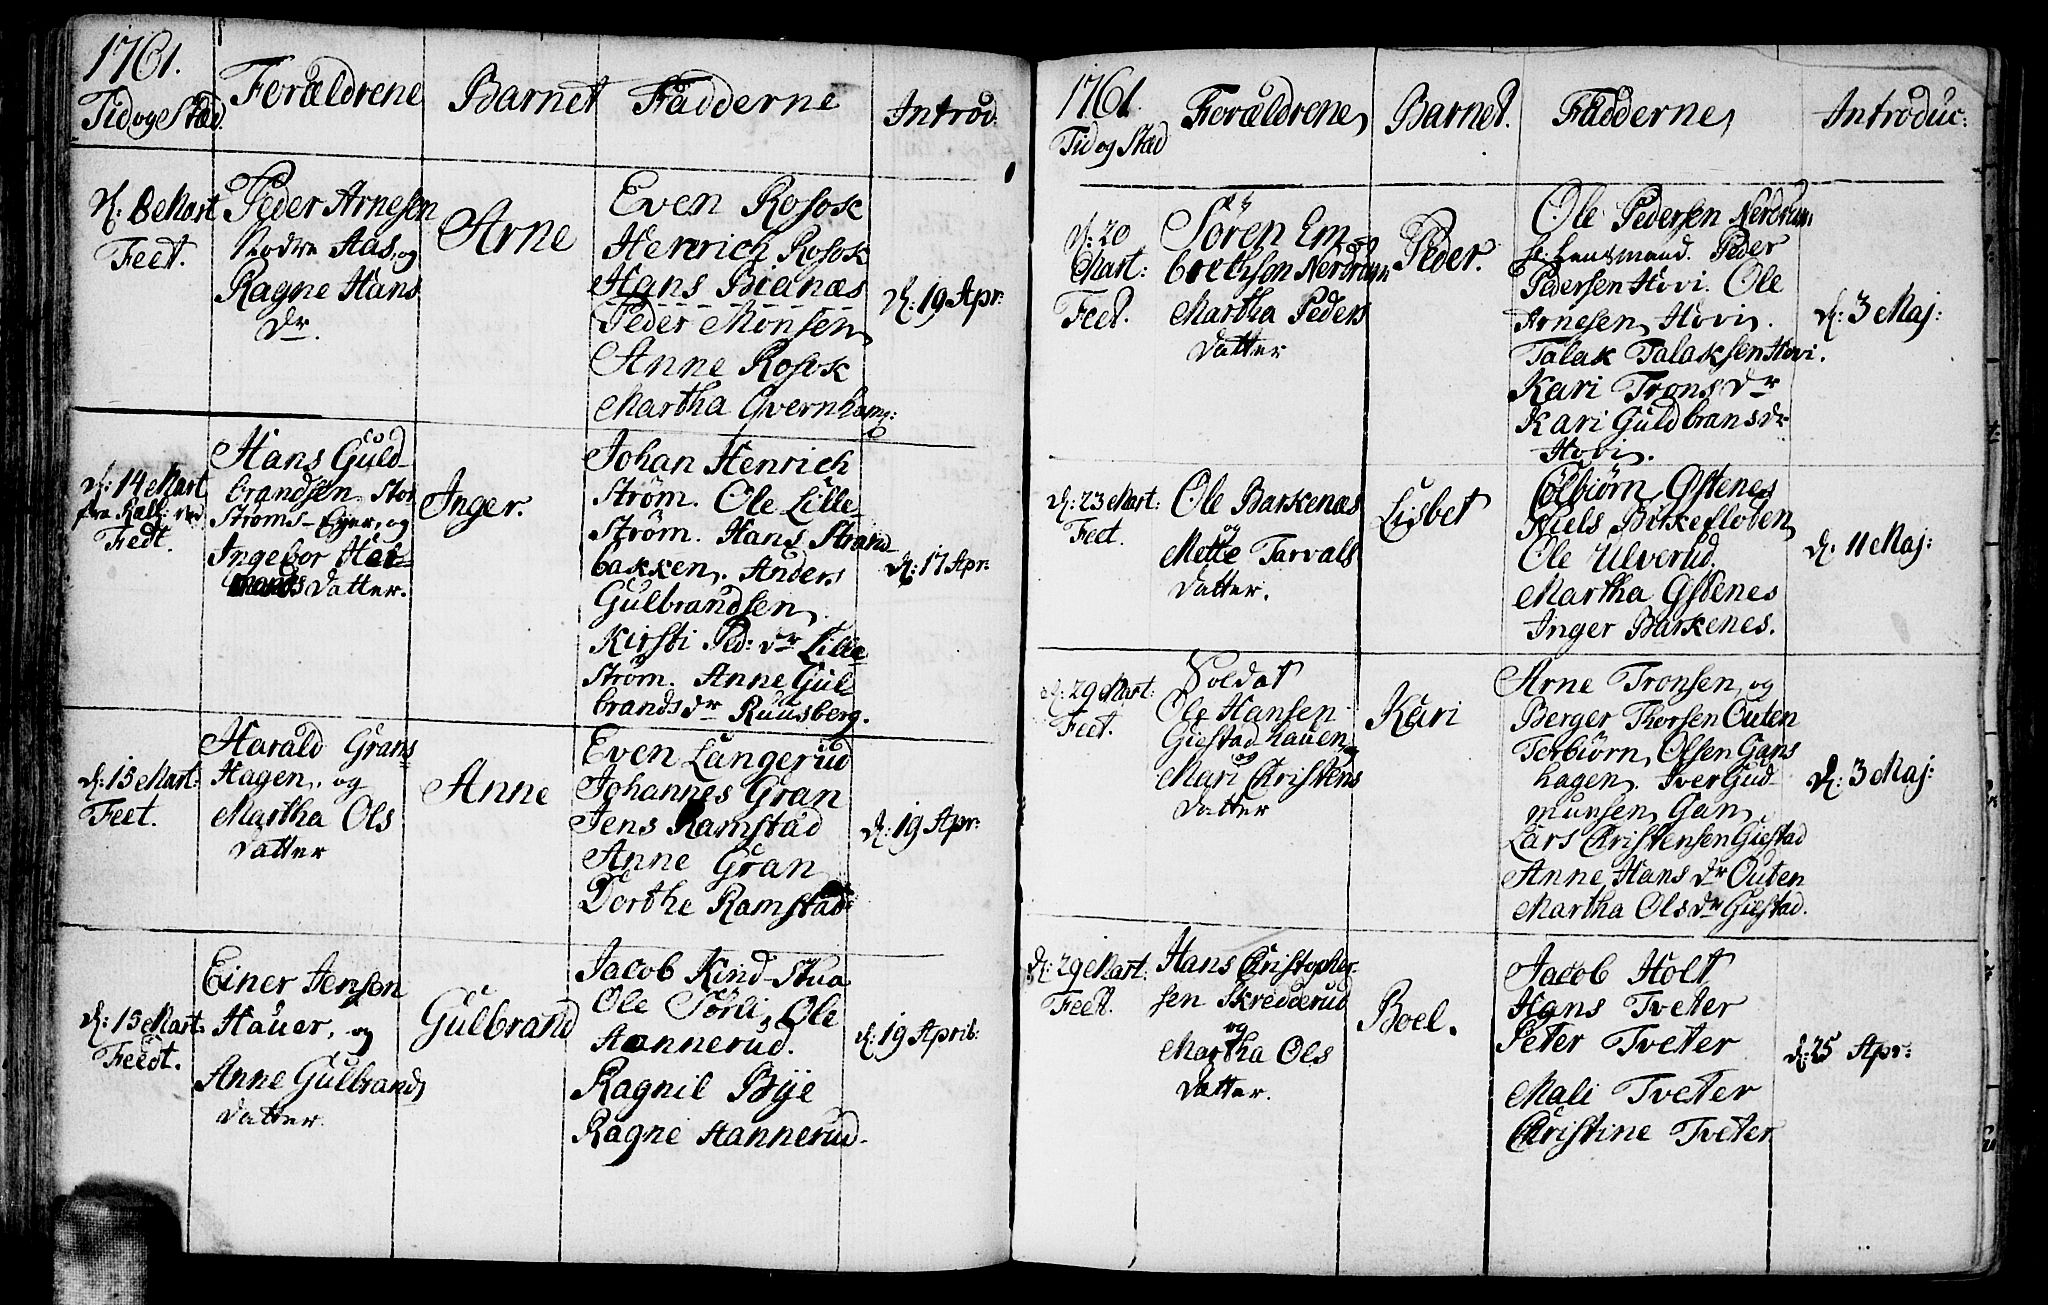 1761.
Tid og Stæd.
Forældrene
Barnet
Fadderne
Introd:
d: 8 Mart
Feet.
Peder Arnesen
Nodre Aas, og
Ragne Hans
dr.
Arne
Even Rosok
Henrich Rosok
Hans Bienæs
Peder Monsen
Anne Rosok
Martha Qvernhamg:
d: 19 Apr:
d: 14 Mart
fra Kall:
Fedt.
Hans Guld-
brandsen Stor
Strøms-Eyer, og
Ingebor Hei-
Datter.
Inger.
Johan Henrich
Strøm. Ole Lille-
Strøm. Hans Strand-
bakken. Anders
Gulbrandsen
Kirsti Ped: dr Lille
Strøm. Anne Gul
brandsdr Ruusberg.
d: 17 Apr:
d: 15 Mart:
Feet.
Harald Grans
Hagen, og
Martha Ols
Datter
Anne
Even Langerud
Johannes Gran
Jens Ramstad
Anne Gran
Dorthe Ramstad
d: 19 Apr:
d: 15 Mart:
Feedt.
Einer Jensen
Hauer, og
Anne Gulbrands
Datter.
Gulbrand
Jacob Kind-Skua
Ole Sørli, Ole
Hannerud.
Ragnil Bye
Ragne Hannerud.
d: 19 April:
1761.
Tid og Stæd
Forældrene
Barnet.
Faddernes
Introduc:
d: 20
Mart:
Feet.
Søren Em-
brethsen Nerdrum
og
Martha Peders
Datter
Peder.
Ole Pedersen Nerdrum
Lensmand. Peder
Pedersen Hovi. Ole
Arnesen Hovi.
Talak Talaksen Hovi.
Kari Trons dr
Kari Guldbransdr
Hovi.
d: 3 Maj:
d: 23 Mart:
Feet.
Ole Barkenæs
og
Mette Tarvals
Datter.
Lisbet
Colbiørn Gstenes
Niels Birkefloten
Ole Ulverud.
Martha Gstenes
Inger Barkenes.
d: 11 Maj:
d: 29 Mart:
Feet.
Soldat
Ole Hansen
Giestad hauen
og
Mari Christens
Datter
Kari
Arne Tronsen, og
Berger Thorsen Outen
Torbiørn Olsen Gans
hagen. Iver Gud-
munsen Gan
Lars Christensen Giestad
Anne Hans dr Outen
Martha Olsdr Giestad.
d: 3 Maj:
d: 29 Mart:
Feet.
Hans Christopher-
sen Skredderud
og
Martha Ols
Datter.
Boel.
Jacob Holt
Hans Tveter
Peter Tveter
Mali Tveter
Christine Tveter
d: 25 Apr: